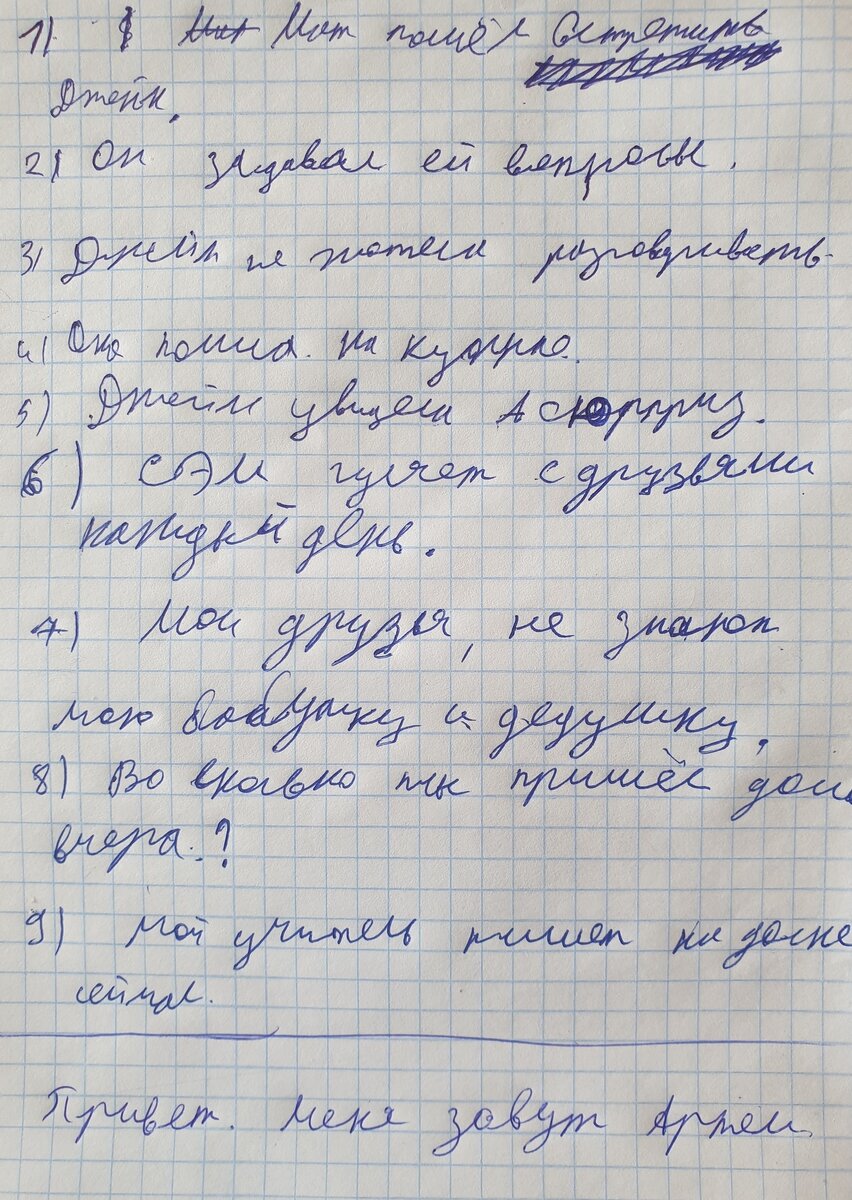 1) Мат пошёл встретить
Джейн.
2) Он задавал ей вопросы.
3) Джейн не хотела разговаривать
4) Она пошла. На кухню.
5) Джейн увидела А сюрприз.
6) СЭМ гуляет с друзьями
каждый день.
7) Мои друзья, не знают
мою бабушку и дедушку.
8) Во сколько ты пришёл дом
вчера.?
9) Мой учитель пишет на доске
сейчас.
Привет. Меня зовут Артем.